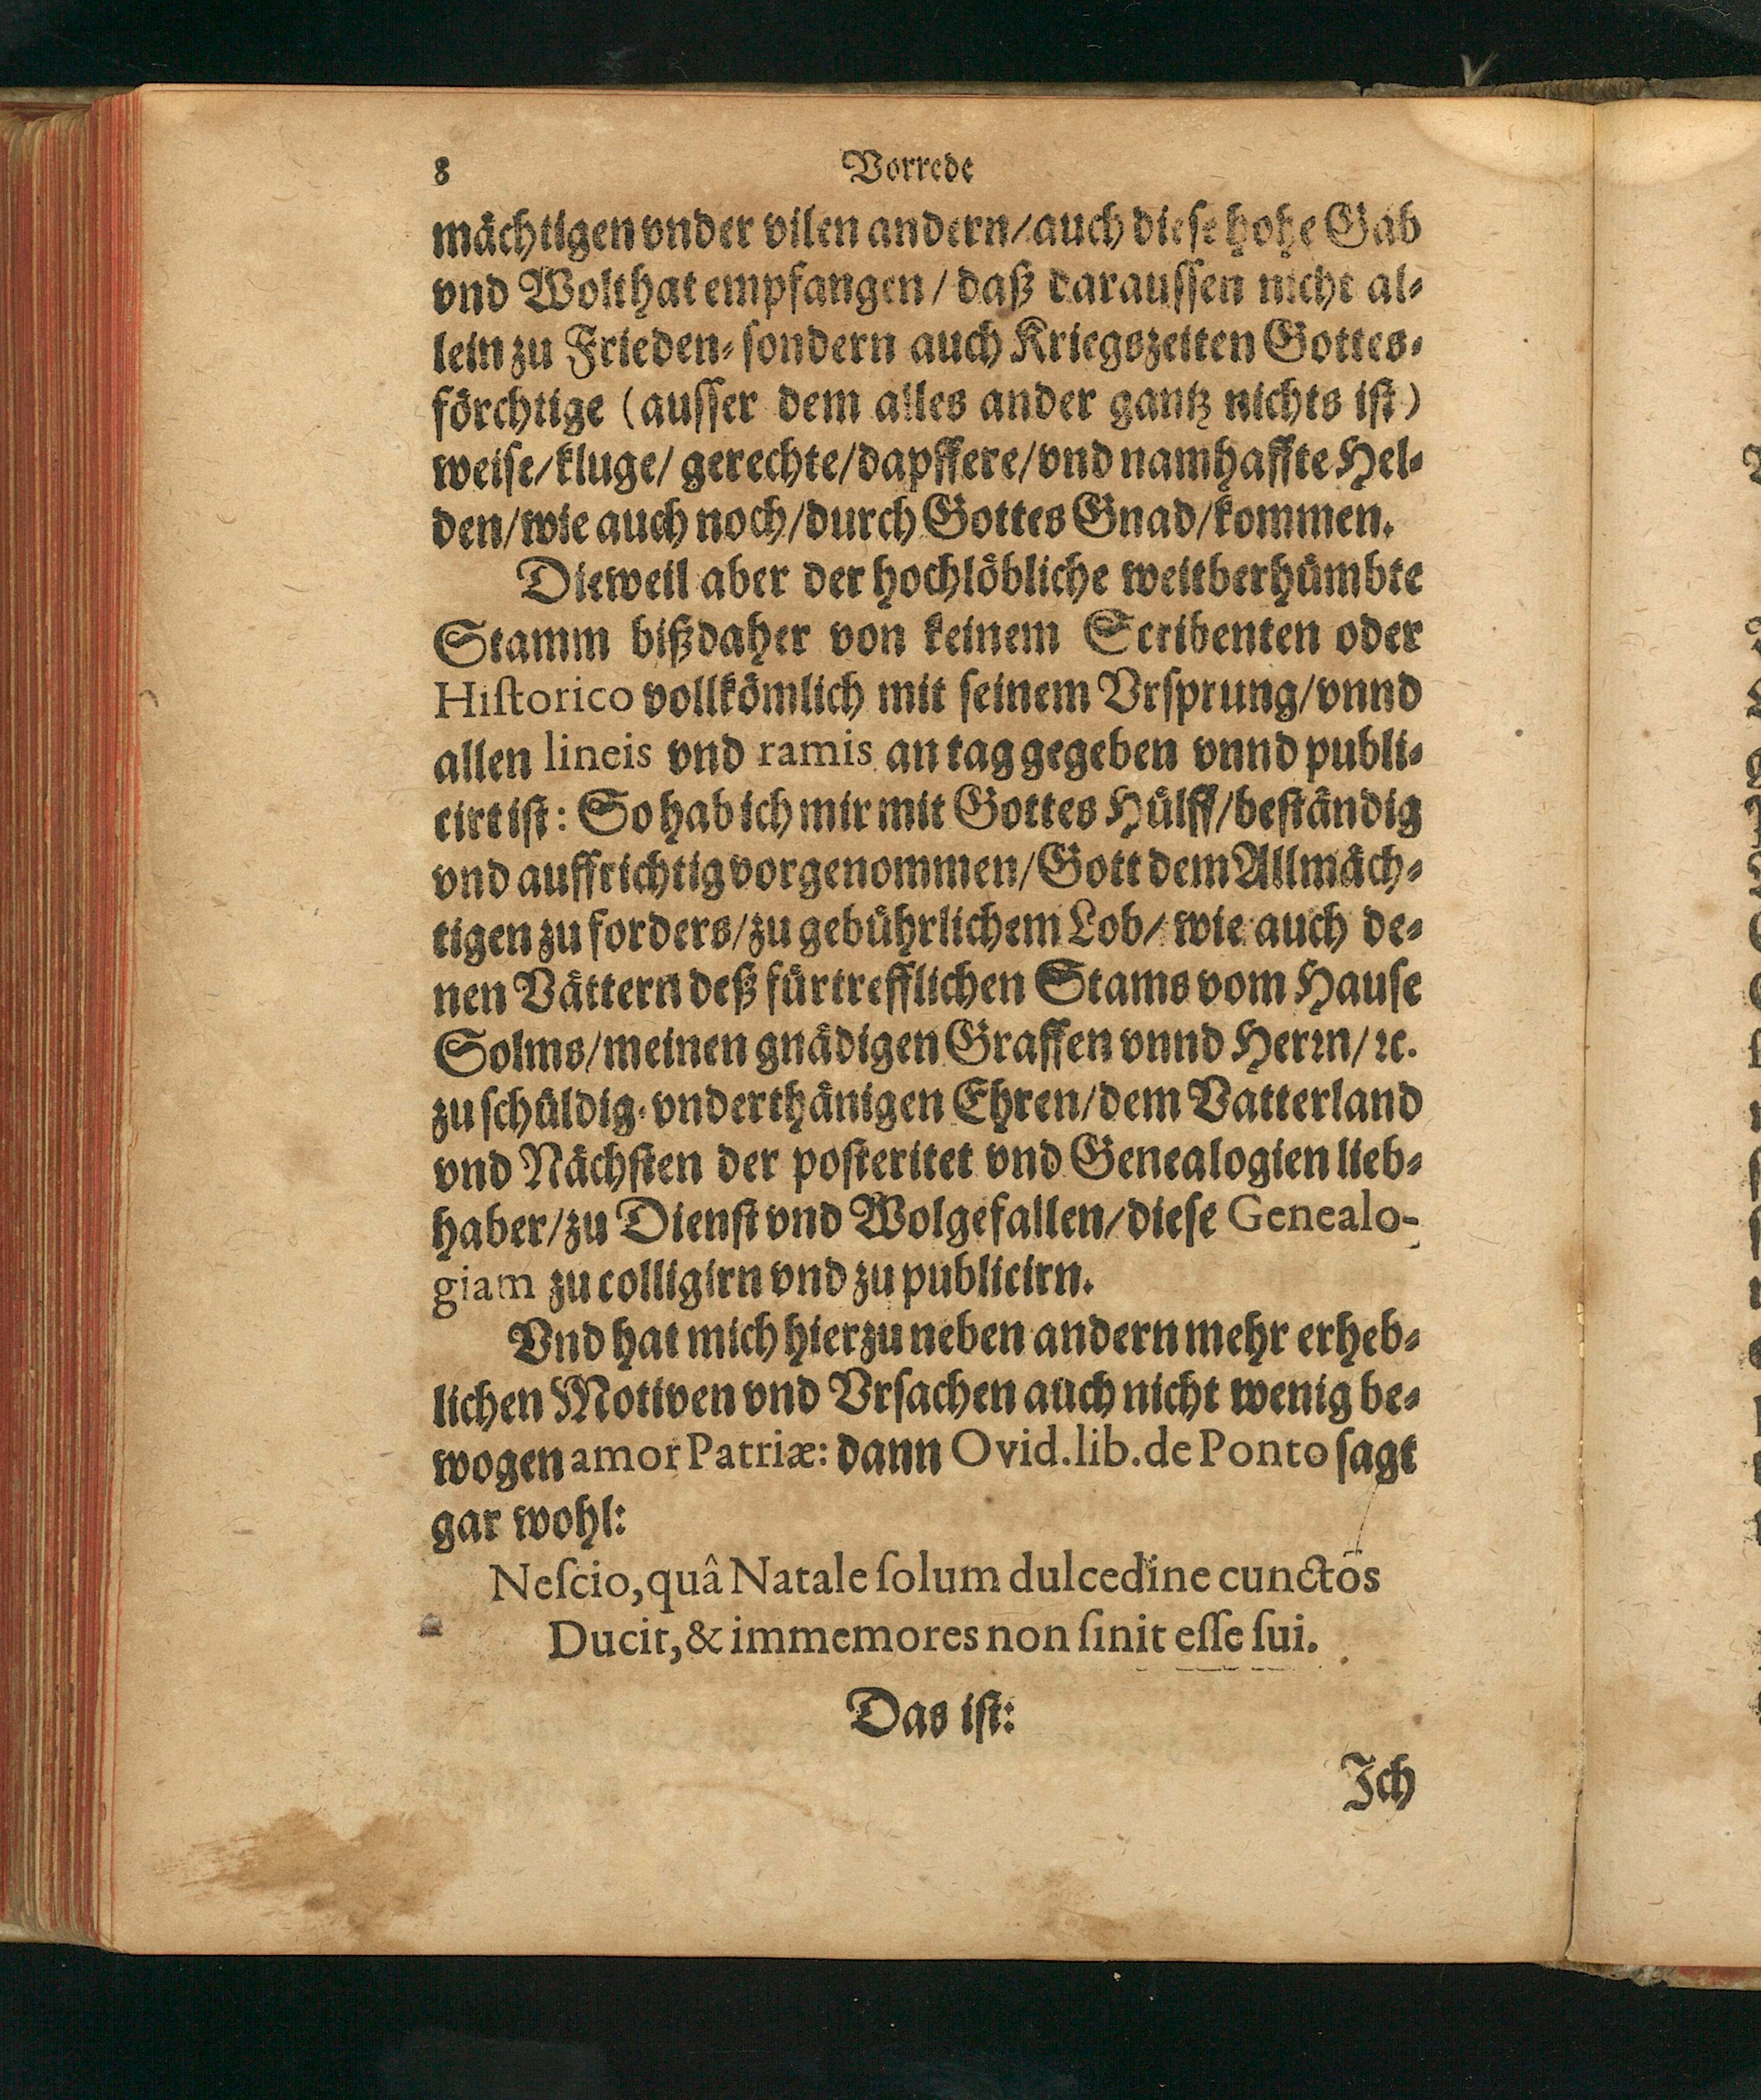 8 Vorrede
mächtigen vnder vilen andern/ auch diese hohe Gab
vnd Wolthat empfangen/ daß daraussen nicht al-
lein zu Frieden- sondern auch Kriegszeiten Gottes-
förchtige (ausser dem alles ander gantz nichts ist)
weise/ kluge/ gerechte/ dapffere/ vnd namhaffte Hel-
den/ wie auch noch/ durch Gottes Gnad/ kommen.
Dieweil aber der hochlöbliche weitberhümbte
Stamm bißdaher von keinem Scribenten oder
Historico vollkömlich mit seinem Vrsprung/ vnnd
allen lineis vnd ramis an tag gegeben vnnd publi-
cirt ist: So hab ich mir mit Gottes Hülff/ beständig
vnd auffrichtig vorgenommen/ Gott dem Allmäch-
tigen zu forders/ zu gebührlichem Lob/ wie auch de-
nen Vättern deß fürtrefflichen Stams vom Hause
Solms/ meinen gnädigen Graffen vnnd Herrn/ ꝛc.
zu schüldig- vnderthänigen Ehren/ dem Vatterland
vnd Nächsten der posteritet vnd Genealogien lieb-
haber/ zu Dienst vnd Wolgefallen/ diese Genealo-
giam zu colligirn vnd zu publicirn.
Vnd hat mich hierzu neben andern mehr erheb-
lichen Motiven vnd Vrsachen auch nicht wenig be-
wogen amor Patriæ: dann Ovid. lib. de Ponto sagt
gar wohl:
Nescio, quâ Natale solum dulcedine cunctos
Ducit, & immemores non sinit esse sui.
Das ist:
Ich